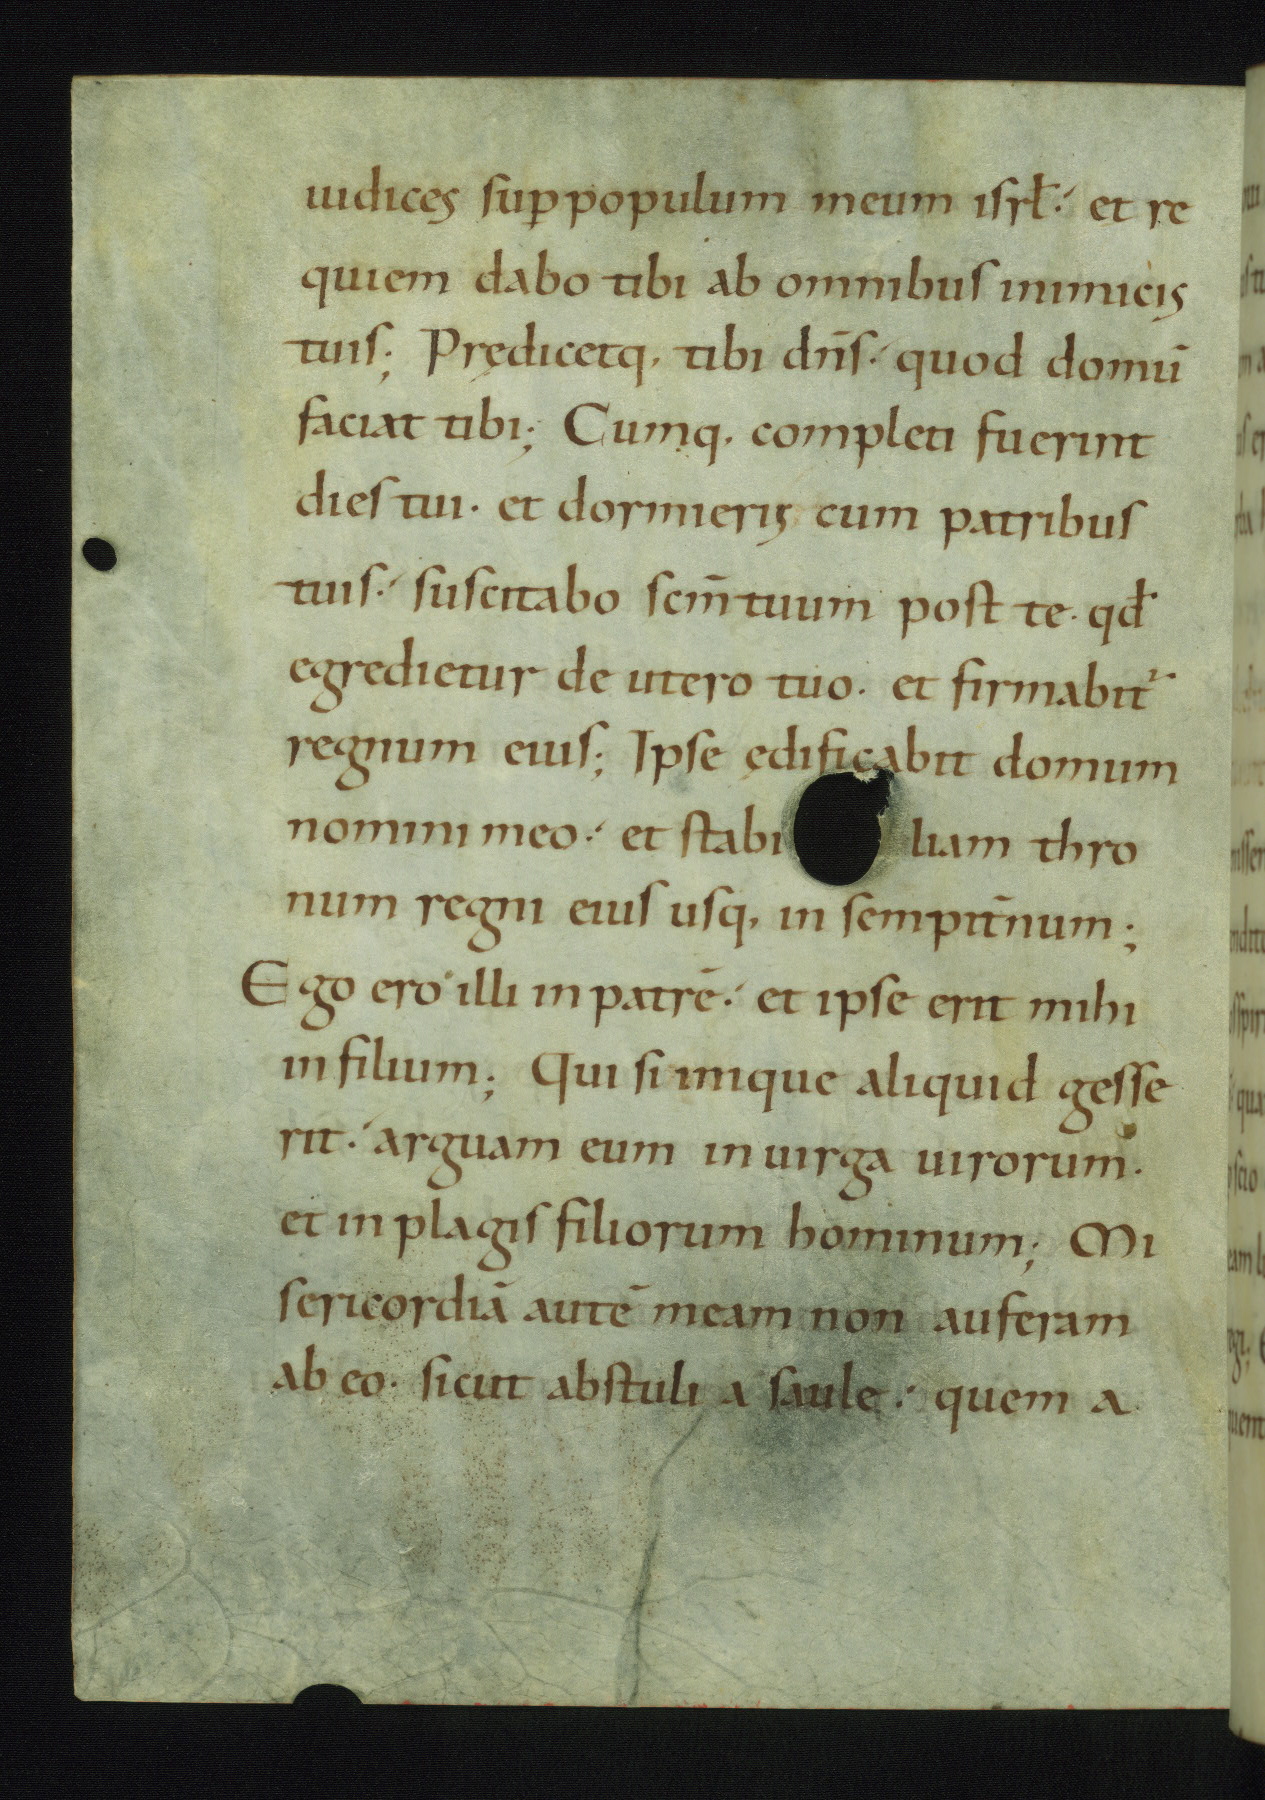 iudices sup̱ populum meum isrł· et re
quiem dabo tibi ab omnibus inimicis
tuis; Prędicetq, tibi dn̄s· quod domū
faciat tibi; Cumq, completi fuerint
dies tui· et dormieris cum patribus
tuis· suscitabo sem̄ tuum post te· qđ
egredietur de utero tuo· et firmabit᷑
regnum eius; Ipse ędificabit domum
nomini meo· et stabi liam thro
num regni eius usq, in sempit̄num;
Ego ero illi in patrē· et ipse erit mihi
in filium; Qui si inique aliquid gesse
rit· arguam eum in uirga uirorum·
et in plagis filiorum hominum; Mi
sericordiā autē meam non auferam
ab eo· sicut abstuli a saule· quem a